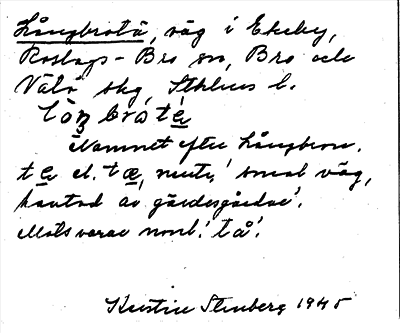 Långbrotä, väg i Ekeby,
Roslags-Bro sn, Bro och
Vätö skg, Sthlms l.
låŋbrotè
Namnet efter Långbron.
te el. tæ, neutr. 'smal väg,
kantad av gärdesgårdar'.
Motsvarar nord. 'tå'.
Kerstin Stenberg 1945